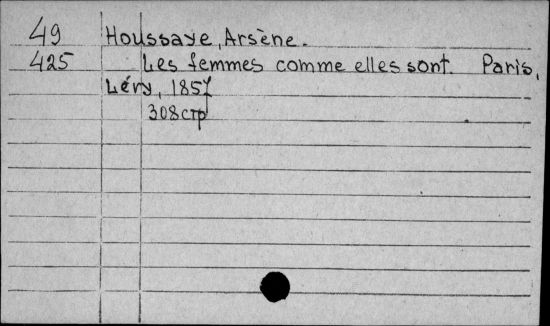 49 Houssaye, Arsène.
425 Les femmes comme elles sont. Paris,
Léry, 1857
308стр